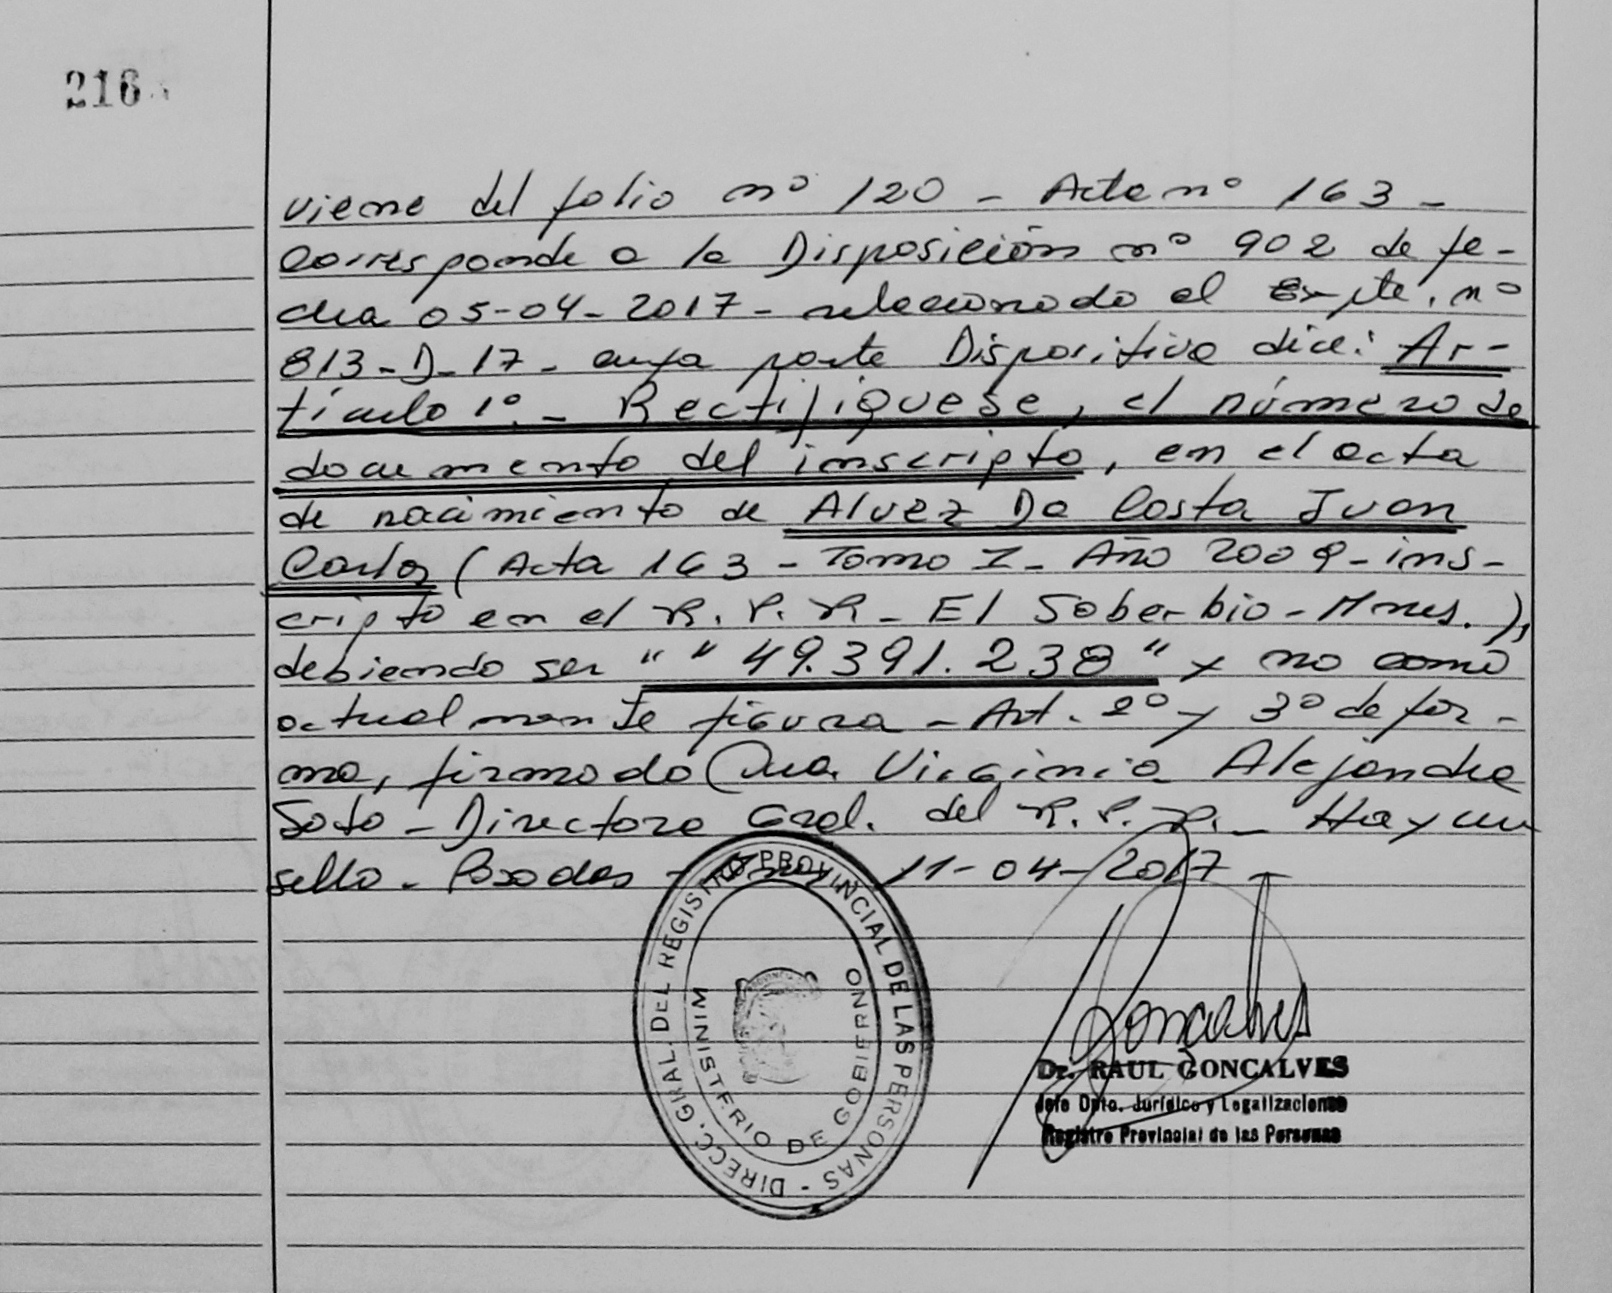 216
viene del folio nº 120 - Acta nº 163 -
Corresponde a la Disposición nº 902 de fe-
cha 05-04-2017 - relacionado al Expte. nº
813-D-17- cuya parte Dispositiva dice: Ar-
tículo 1º.- Rectifíquese, el número de
documento del inscripto, en el acta
de nacimiento de Alvez Da Costa Juan
Carlos (Acta 163 - Tomo I - Año 2009 - ins-
cripto en el R.P.P. - El Soberbio - Mnes.),
debiendo ser " " 49.391.238 " y no como
actualmente figura - Art. 2º y 3º de for-
ma, firmado Dra. Virginia Alejandra
Soto - Directora Gral. del R.P.P. - Hay un
sello. Posadas - 11-04-2017 -
DIRECC. GRAL. DEL REGISTRO PROVINCIAL DE LAS PERSONAS -
MINISTERIO DE GOBIERNO
Goncalves
Dr. RAUL GONCALVES
Jefe Dpto. Jurídico y Legalizaciones
Registro Provincial de las Personas